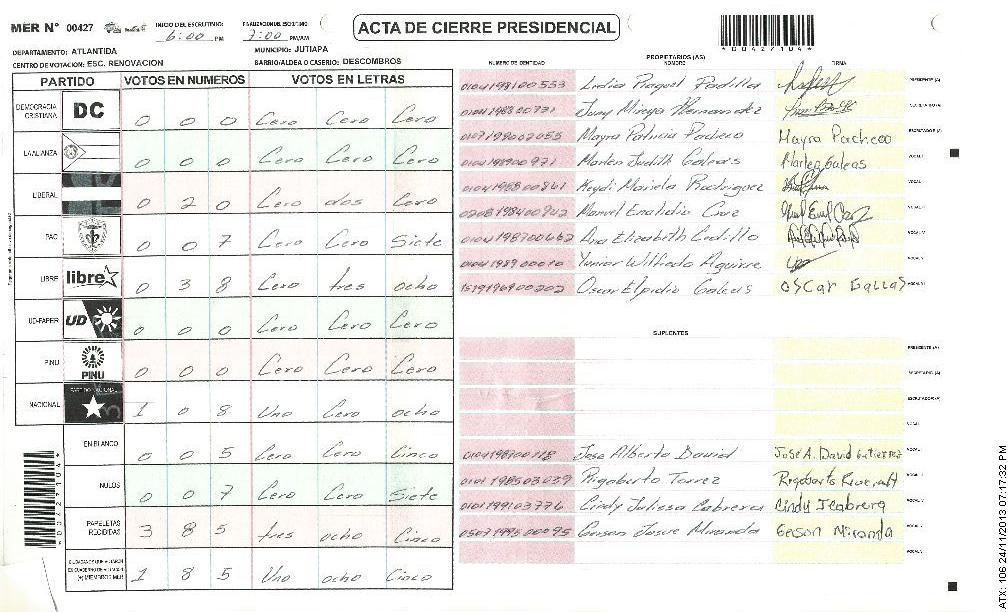 MER N° 00427 INICIO DEL ESCRUTINIO 6:00 PM FINALIZACION DEL ESCRUTINIO 7:00 PM/AM ACTA DE CIERRE PRESIDENCIAL
*00427104*
DEPARTAMENTO: ATLANTIDA MUNICIPIO: JUTIAPA
CENTRO DE VOTACION: ESC. RENOVACION BARRIO/ALDEA O CASERIO: DESCOMBROS
PARTIDO VOTOS EN NUMEROS VOTOS EN LETRAS
DEMOCRACIA CRISTIANA DC 0 0 0 Cero Cero Cero
LA ALIANZA 0 0 0 Cero Cero Cero
LIBERAL 0 2 0 Cero dos Cero
PAC 0 0 7 Cero Cero Siete
LIBRE libre 0 3 8 Cero tres ocho
UD-FAPER UD 0 0 0 Cero Cero Cero
PINU PINU 0 0 0 Cero Cero Cero
NACIONAL 1 0 8 Uno Cero ocho
EN BLANCO 0 0 5 Cero Cero Cinco
NULOS 0 0 7 Cero Cero Siete
PAPELETAS RECIBIDAS 3 8 5 tres ocho Cinco
CIUDADANOS QUE VOTARON EN CUADERNO DE VOTACION (+) MIEMBROS MER 1 8 5 Uno ocho Cinco
*00427104*
PROPIETARIOS (AS)
NUMERO DE IDENTIDAD NOMBRE FIRMA
0104198100553 Lidia Raquel Padilla PRESIDENTE (A)
Hernandez SECRETARIO (A)
0107198002055 Mayra Patricia Pacheco Mayra Pacheco ESCRUTADOR (A)
Marlen Judith Galeas Marlen Galeas VOCAL I
Keydi Mariela Rodriguez VOCAL
Manuel Enalidio Cruz VOCAL
0104198700662 Ana Elizabeth Cedillo VOCAL
Yunior Wilfredo Aguirre VOCAL
1519196900202 Oscar Elpidio Galeas OSCar Galeas VOCAL
SUPLENTES
PRESIDENTE (A)
SECRETARIO (A)
ESCRUTADOR (A)
VOCAL
0104198700118 Jose Alberto David José A. David Gutierrez VOCAL
0101198503039 Rigoberto Torrez Rigoberto VOCAL
0101199103776 Cindy Julissa Cabrera Cindy J cabrera VOCAL
0507199500095 Gerson Josue Miranda Gerson Miranda VOCAL
VOCAL
ATX: 106 24/11/2013 07:17:32 PM